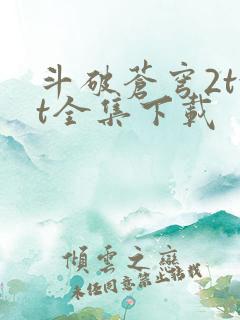 斗破蒼穹2t
t全集下載
傾雲之戀
未经同意禁止转载